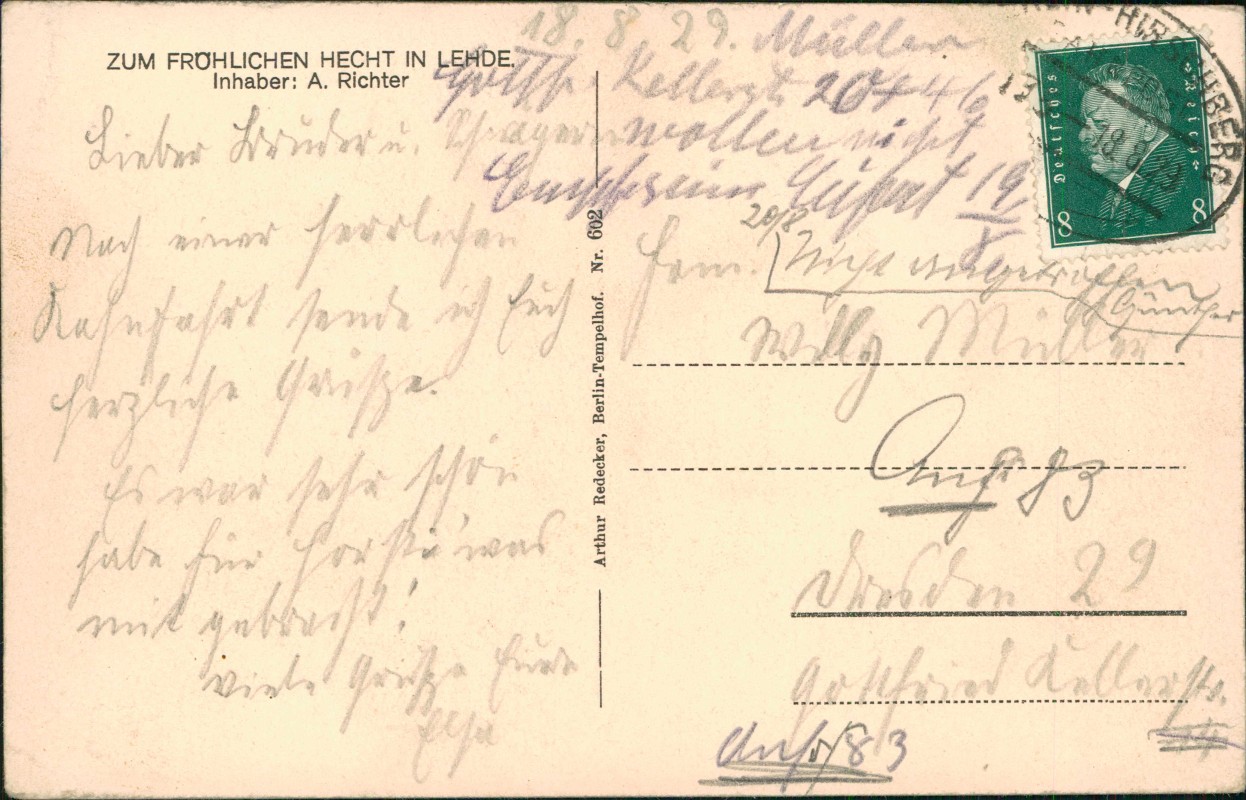 ZUM FRÖHLICHEN HECHT IN LEHDE.
Inhaber: A. Richter
18. 8. 29. Müller
Kellerst. 20 44 46
wollen nicht
19
8
Lieber Bruder u. Schwägerin
Nach einer herrlichen
Kahnfahrt sende ich Euch
herzliche Grüße.
Es war sehr schön
habe für Horst was
mit gebracht!
viele Grüße Eure
Elsa
Arthur Redecker, Berlin-Tempelhof. Nr. 602
Deutsches Reich
8 8
HIRSCHBERG
18.8.29
20/8
Nicht angetroffen
Günther
Fam.
Willy Müller
83
Dresden 29
Gottfried Kellerstr.
83